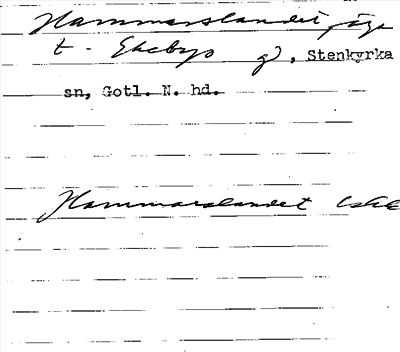 Hammarslandet, äga
t. Ekebys g), Stenkyrka
sn, Gotl. N. hd.
Hammarslandet